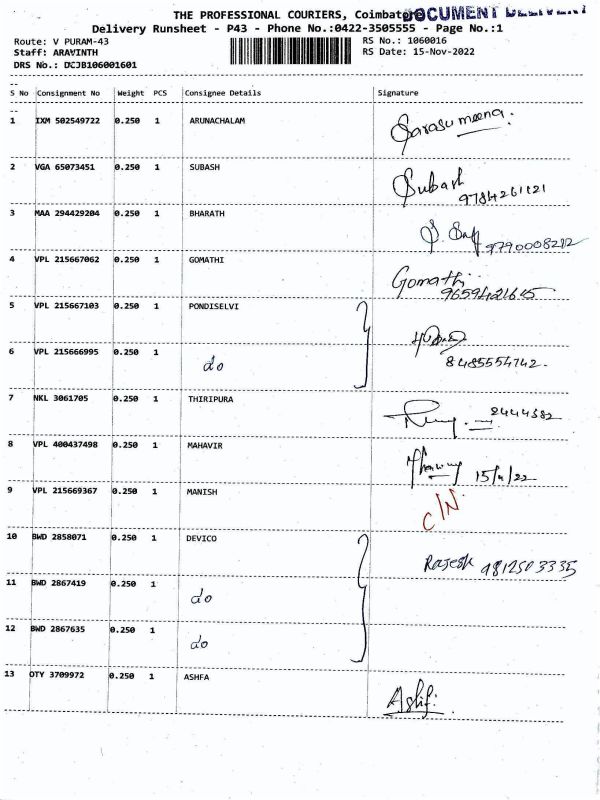 THE PROFESSIONAL COURIERS, Coimbatore DOCUMENT DELIVERY
Delivery Runsheet - P43 - Phone No.:0422-3505555 - Page No.:1
Route: V PURAM-43 RS No.: 1060016
Staff: ARAVINTH RS Date: 15-Nov-2022
DRS No.: DCJB106001601
S No Consignment No Weight PCS Consignee Details Signature
1 IXM 502549722 0.250 1 ARUNACHALAM Sarasu meena.
2 VGA 65073451 0.250 1 SUBASH Subash
9784261121
3 MAA 294429204 0.250 1 BHARATH
9790008212
4 VPL 215667062 0.250 1 GOMATHI Gomathi
9659421615
5 VPL 215667103 0.250 1 PONDISELVI
6 VPL 215666995 0.250 1 do 8485554742.
7 NKL 3061705 0.250 1 THIRIPURA 2444382
8 VPL 400437498 0.250 1 MAHAVIR 15/11/22
9 VPL 215669367 0.250 1 MANISH C/N.
10 BWD 2858071 0.250 1 DEVICO Rajesh 9812503335
11 BWD 2867419 0.250 1 do
12 BWD 2867635 0.250 1 do
13 OTY 3709972 0.250 1 ASHFA Ashif.